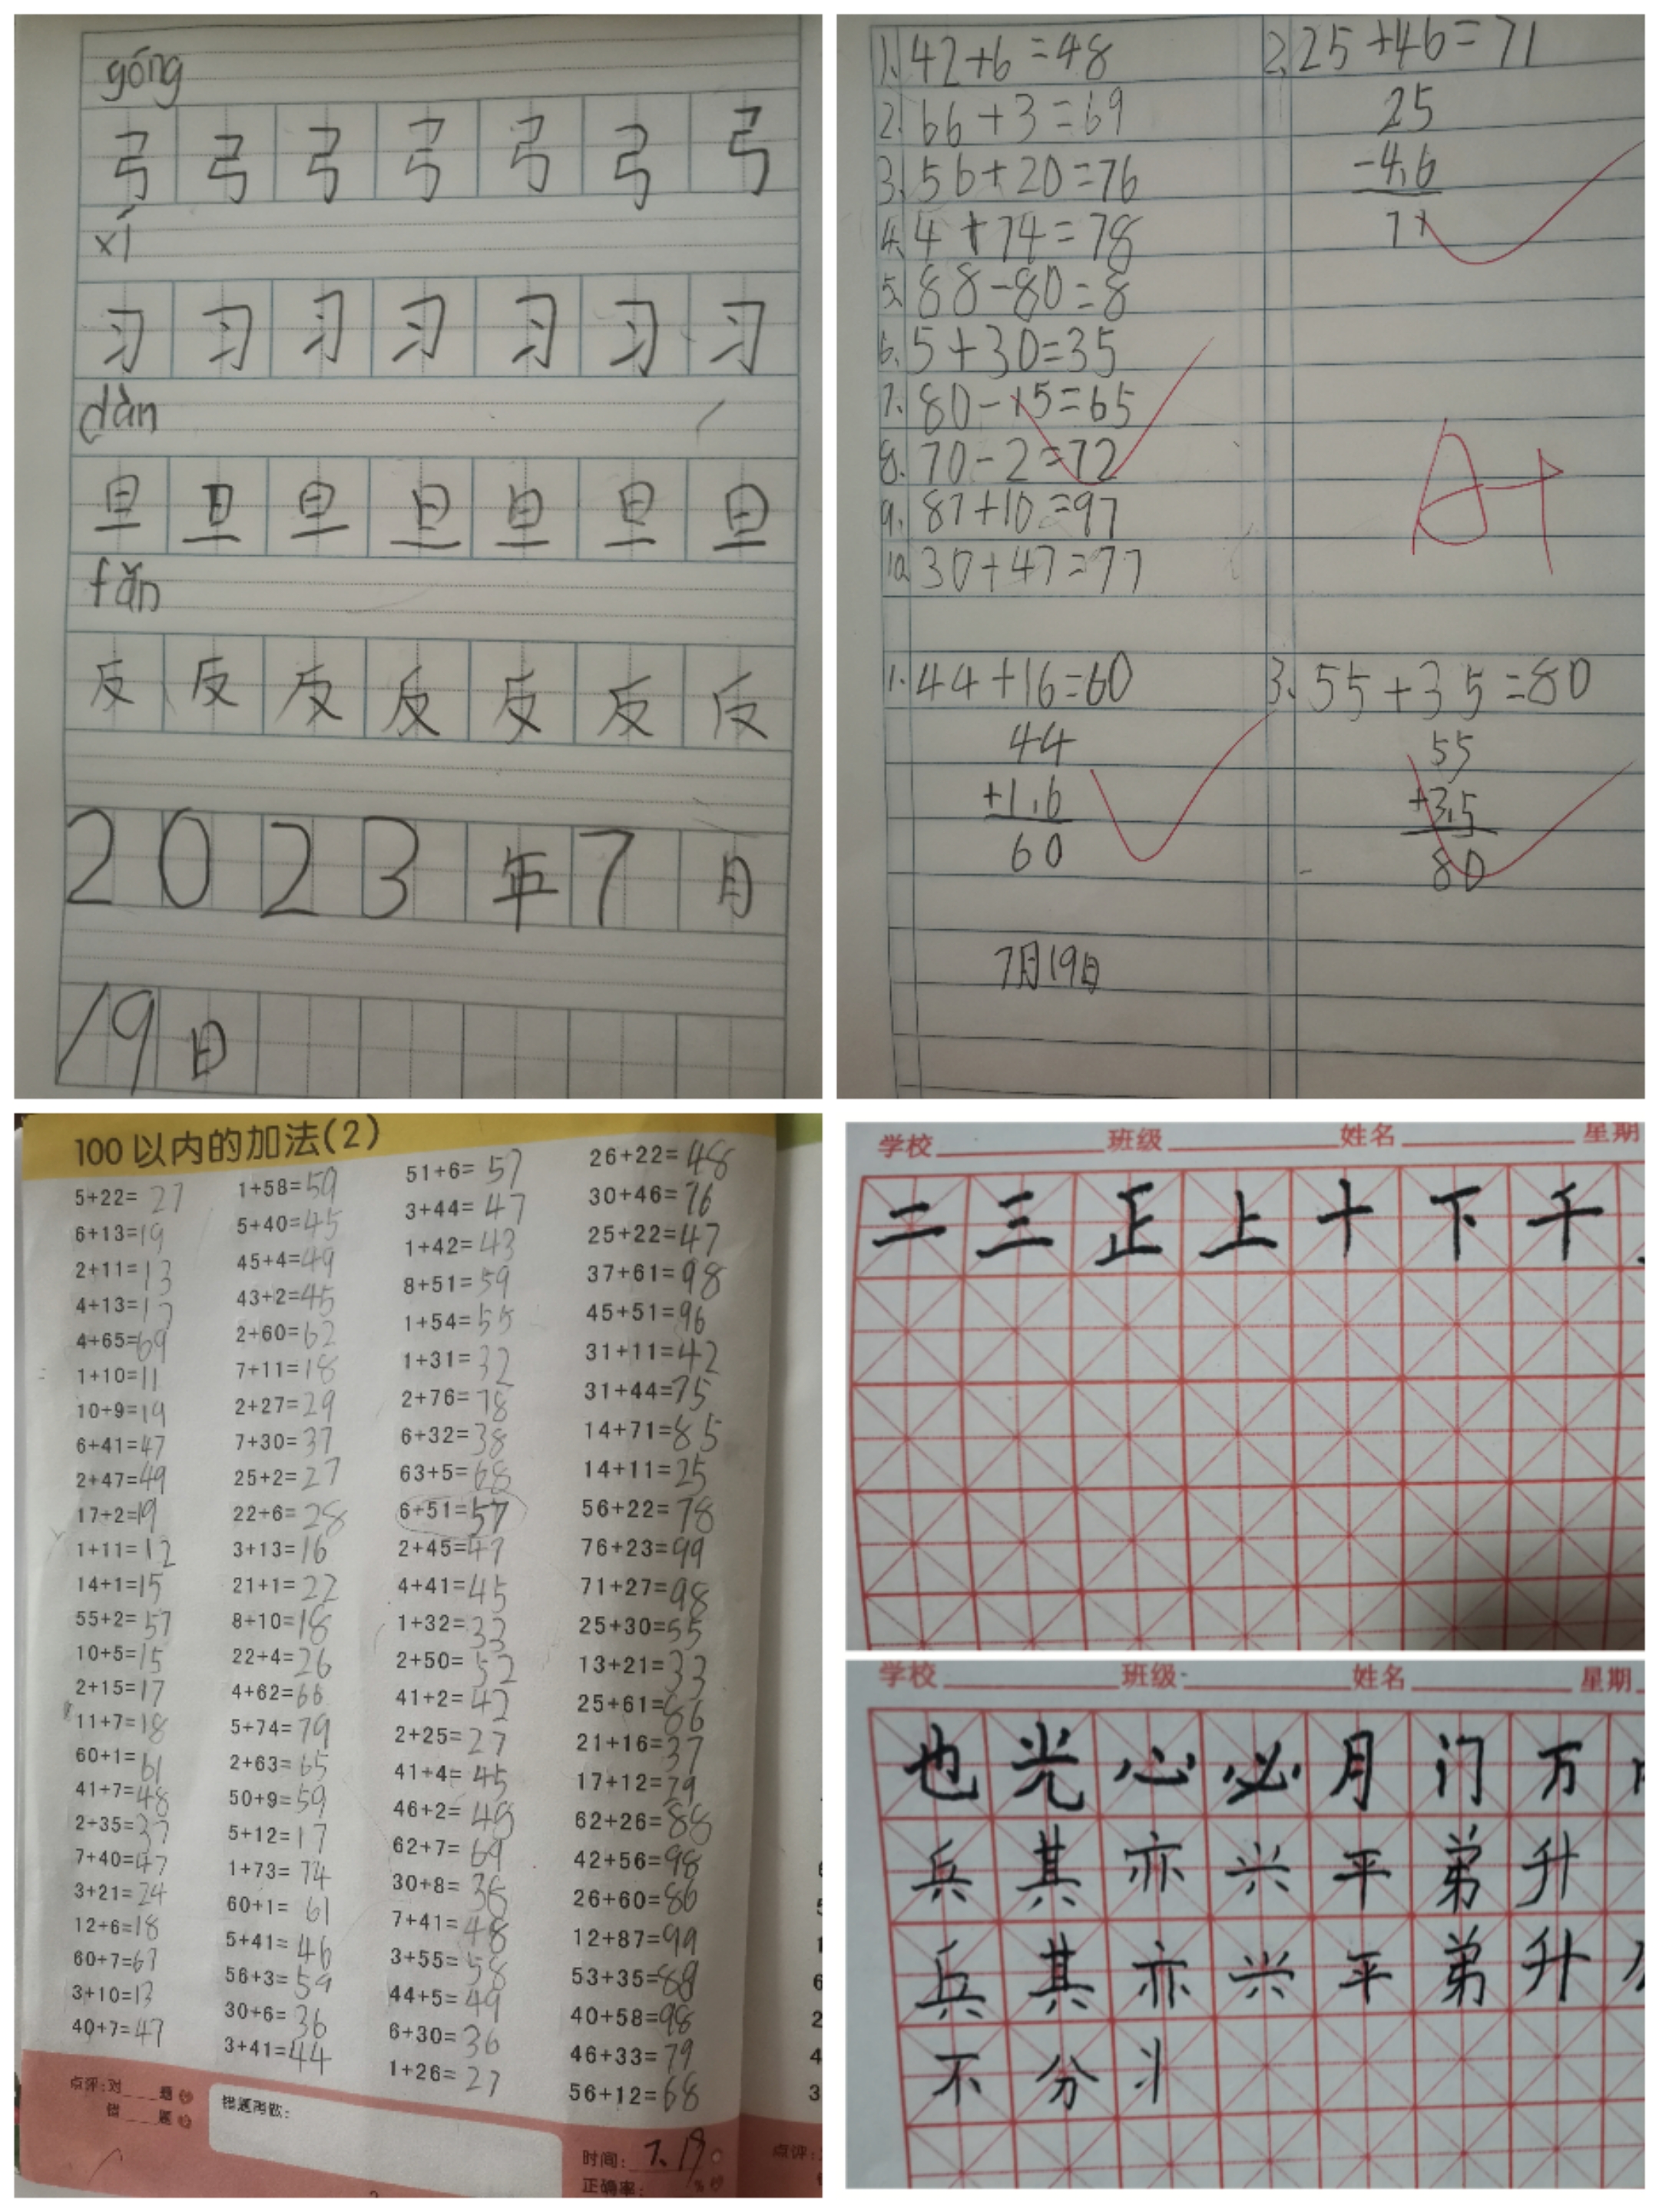 góng
弓 弓 弓 弓 弓 弓 弓
xí
习 习 习 习 习 习 习
dàn
旦 旦 旦 旦 旦 旦 旦
fǎn
反 反 反 反 反 反 反
2 0 2 3 年 7 月
19 日
1. 42+6=48
2. 66+3=69
3. 56+20=76
4. 4+74=78
5. 88-80=8
6. 5+30=35
7. 80-15=65
8. 70-2=72
9. 87+10=97
10. 30+47=77
2. 25+46=71
25
-4.6
71
A+
1. 44+16=60
44
+1.6
60
3. 55+35=80
55
+3.5
80
7月19日
100以内的加法(2)
5+22=27
6+13=19
2+11=13
4+13=17
4+65=69
1+10=11
10+9=19
6+41=47
2+47=49
17+2=19
1+11=12
14+1=15
55+2=57
10+5=15
2+15=17
11+7=18
60+1=61
41+7=48
2+35=37
7+40=47
3+21=24
12+6=18
60+7=67
3+10=13
40+7=47
1+58=59
5+40=45
45+4=49
43+2=45
2+60=62
7+11=18
2+27=29
7+30=37
25+2=27
22+6=28
3+13=16
21+1=22
8+10=18
22+4=26
4+62=66
5+74=79
2+63=65
50+9=59
5+12=17
1+73=74
60+1=61
5+41=46
56+3=59
30+6=36
3+41=44
51+6=57
3+44=47
1+42=43
8+51=59
1+54=55
1+31=32
2+76=78
6+32=38
63+5=68
6+51=57
2+45=47
4+41=45
1+32=33
2+50=52
41+2=42
2+25=27
41+4=45
46+2=48
62+7=69
30+8=38
7+41=48
3+55=58
44+5=49
6+30=36
1+26=27
26+22=48
30+46=76
25+22=47
37+61=98
45+51=96
31+11=42
31+44=75
14+71=85
14+11=25
56+22=78
76+23=99
71+27=98
25+30=55
13+21=33
25+61=86
21+16=37
17+12=29
62+26=88
42+56=98
26+60=86
12+87=99
53+35=88
40+58=98
46+33=79
56+12=68
点评:对___题
错___题
错题再做:
时间: 7.19
正确率:
点评:
学校 班级 姓名 星期
二 三 正 上 十 下 千
学校 班级 姓名 星期
也 光 心 必 月 门 万
兵 其 亦 兴 平 弟 升
兵 其 亦 兴 平 弟 升
不 分